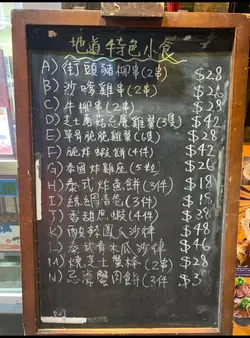 地道特色小食
A) 街頭豬柳串(2串) $28
B) 沙嗲雞串(2串) $26
C) 牛柳串(2串) $28
D) 芝士蘑菇忌廉雞翼(3隻) $42
E) 單骨脆脆雞翼(6隻) $42
F) 脆炸蝦餅(4件) $42
G) 泰國炸雞座(5粒) $26
H) 泰式炸魚餅(3件) $18
I) 絲綢春卷(3件) $18
J) 香甜 蝦(4件) $38
K) 酸辣青瓜沙律 $48
L) 泰式青木瓜沙律 $46
M) 燒芝士蟹棒(2串) $28
N) 忌廉蟹肉餅(3件